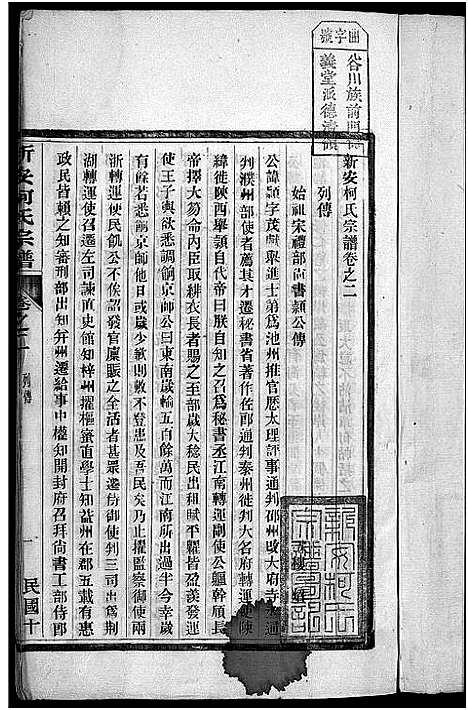 字號
谷川族前門
義堂派德
新安柯氏宗譜卷之二
列傳
始祖宋禮部尚書頴公傳
公諱頴字茂獻舉進士第為池州推官歷太理評事通判邵州歲大府寺丞通
判濮州部使者言其有才遷秘書省著作佐郎通判秦州徙判大名府轉運使陳
緯徙陝西舉頴自代帝曰朕自知之召為秘書丞江南轉運副使公軀幹頎長
帝擇大笏命內臣取緋衣長者賜之至部歲大稔民出租賦平糴皆盈羨發運
使王子輿欲悉調餉京師公曰東南歲輸五百餘萬而江南所出過半今幸歲
有餘若悉餉京師他日或歲少歉則數不登患及吾民矣乃止擢監察御使兩
浙轉運使民飢公不俟詔發官廩賑之全活者甚眾遷侍御使判三司出為荆
湖轉運使召遷左司諫直史館知梓州擢樞蜜直學士知益州在郡五載有惠
政民皆賴之知審刑部出知升州遷給事中權知開封府召拜尚書工部侍郎
新安柯氏宗譜
卷之二
列傳
一
民國十
新安柯氏
宗譜